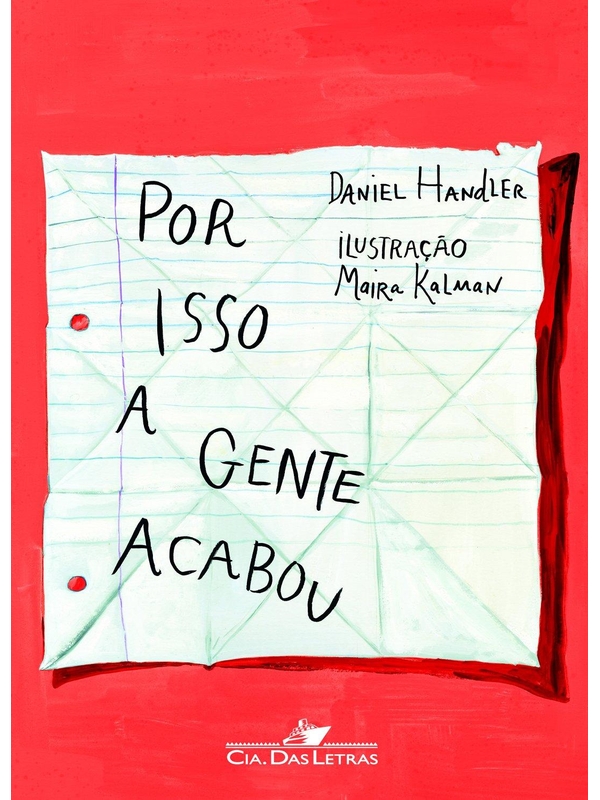 POR
ISSO
A
GENTE
ACABOU
DANIEL HANDLER
ILUSTRAÇÃO
Maira Kalman
CIA. DAS LETRAS